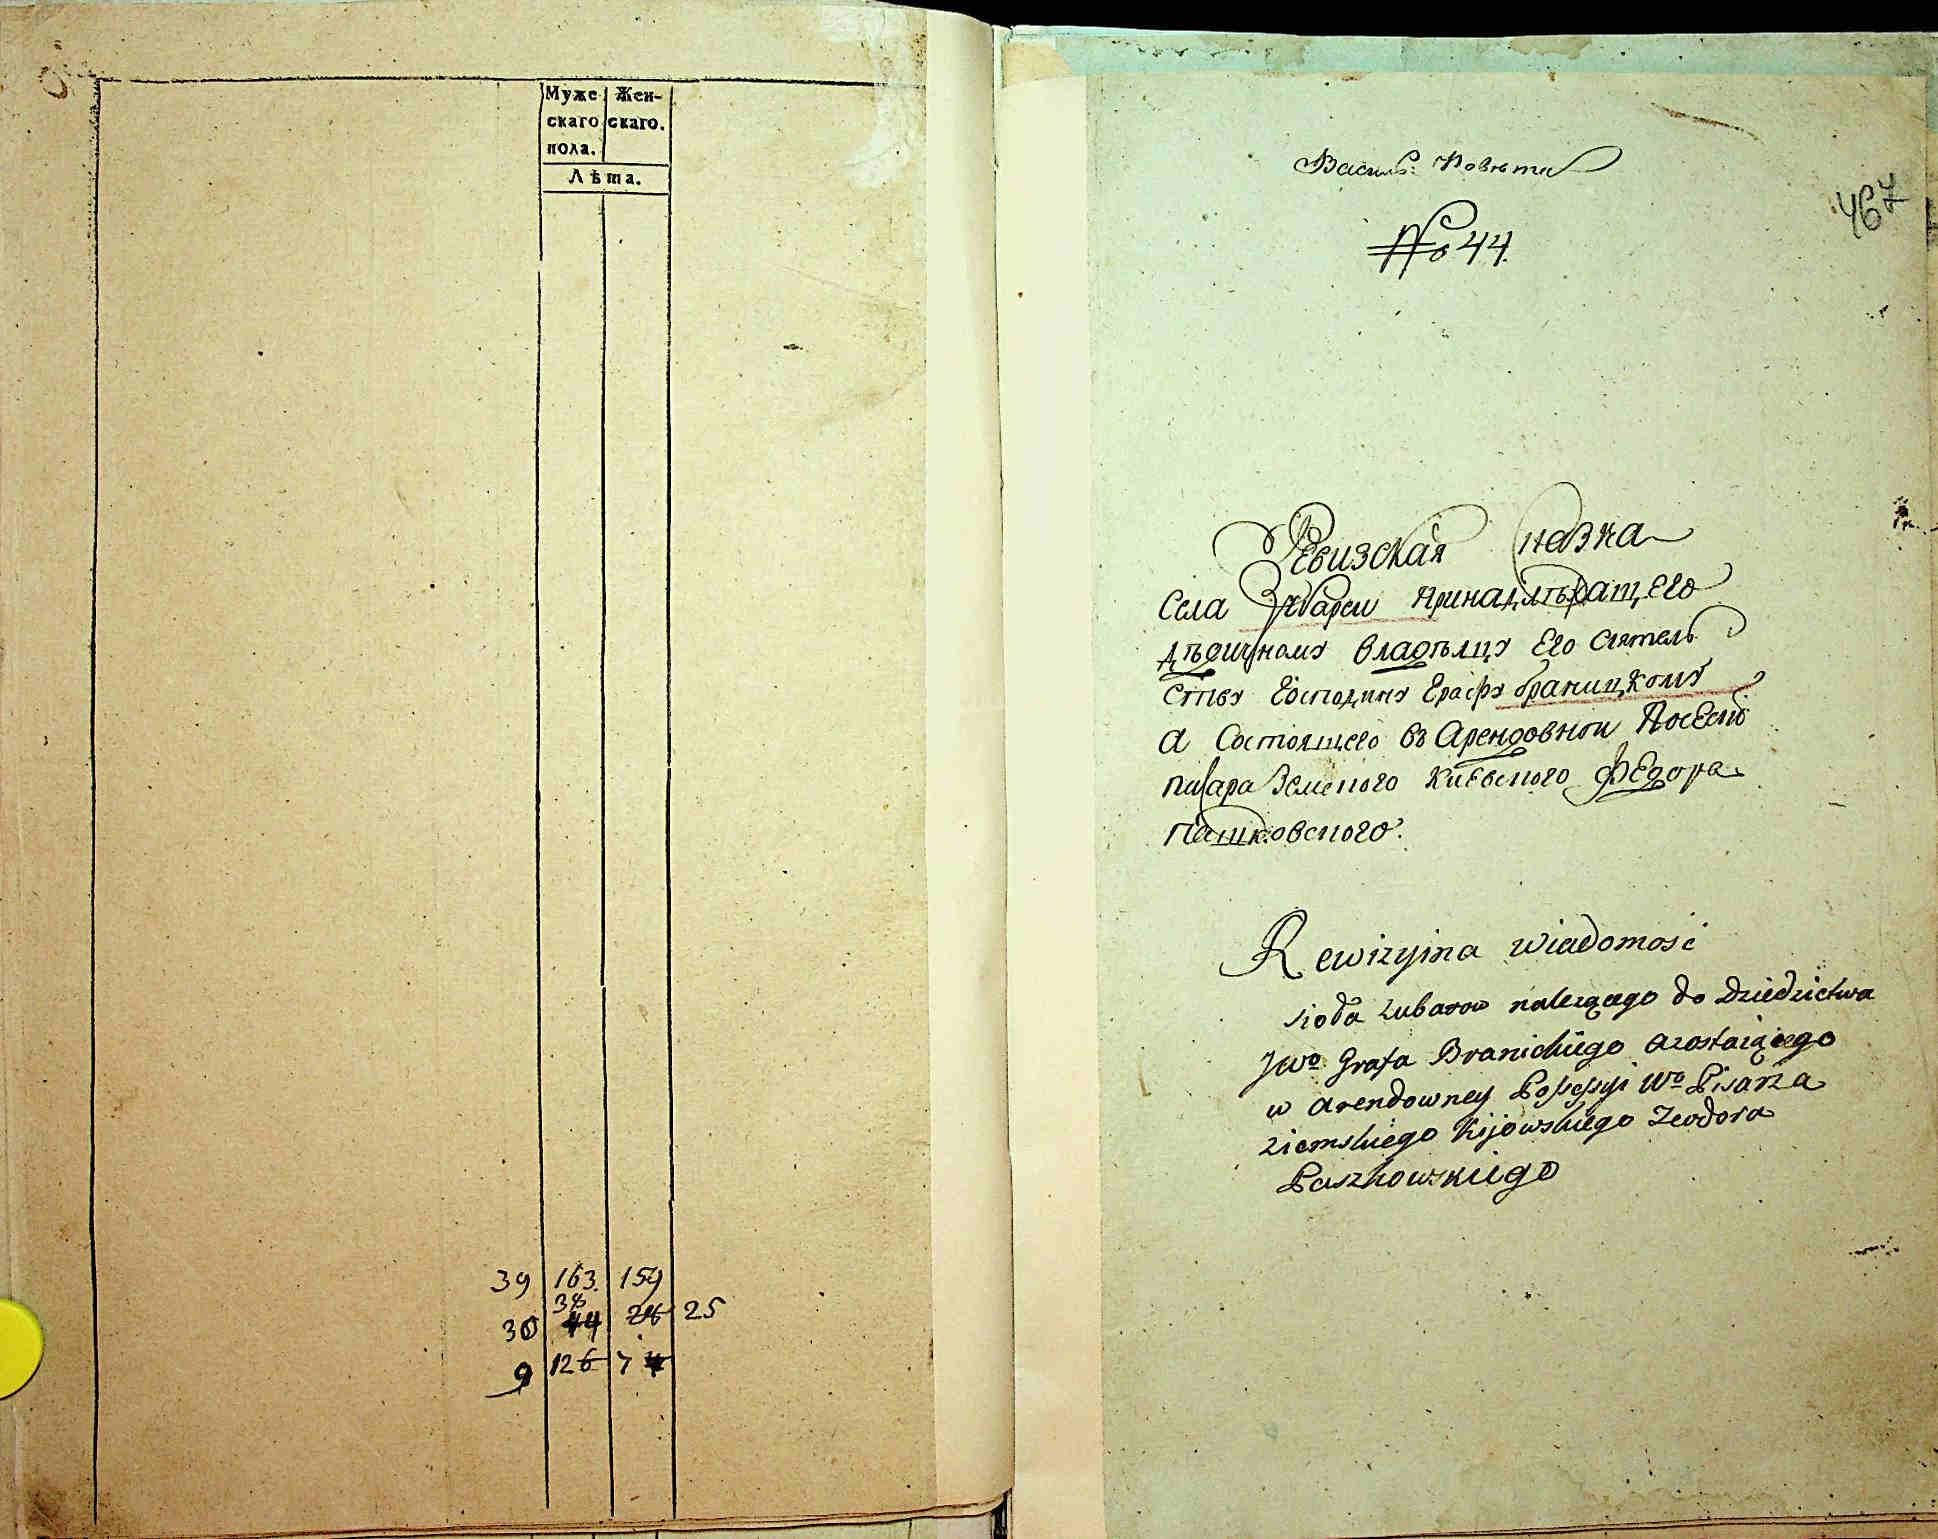 Муже Жен-
скаго скаго.
пола.
Лѣта.
39 163. 159
38
30 44 26 25
9 126 7 4
Василь: Повѣта
467
№ 44.
Ревизская сказка
Села Зубареи принадлѣжащего
дѣдичному владѣлцу Его Сіятель
ству Господину Графу браницкому
а Состоящего въ Арендовной Посесіи
писара Земского Киевского Федора
пашковского.
Rewizyina wiadomość
sioła Zubarow należącego do Dziedzictwa
JWo Grafa Branickiego a zostaiącego
w arendowney Possessyi Wo Pisarza
ziemskiego Kijowskiego Teodora
Paszkowskiego